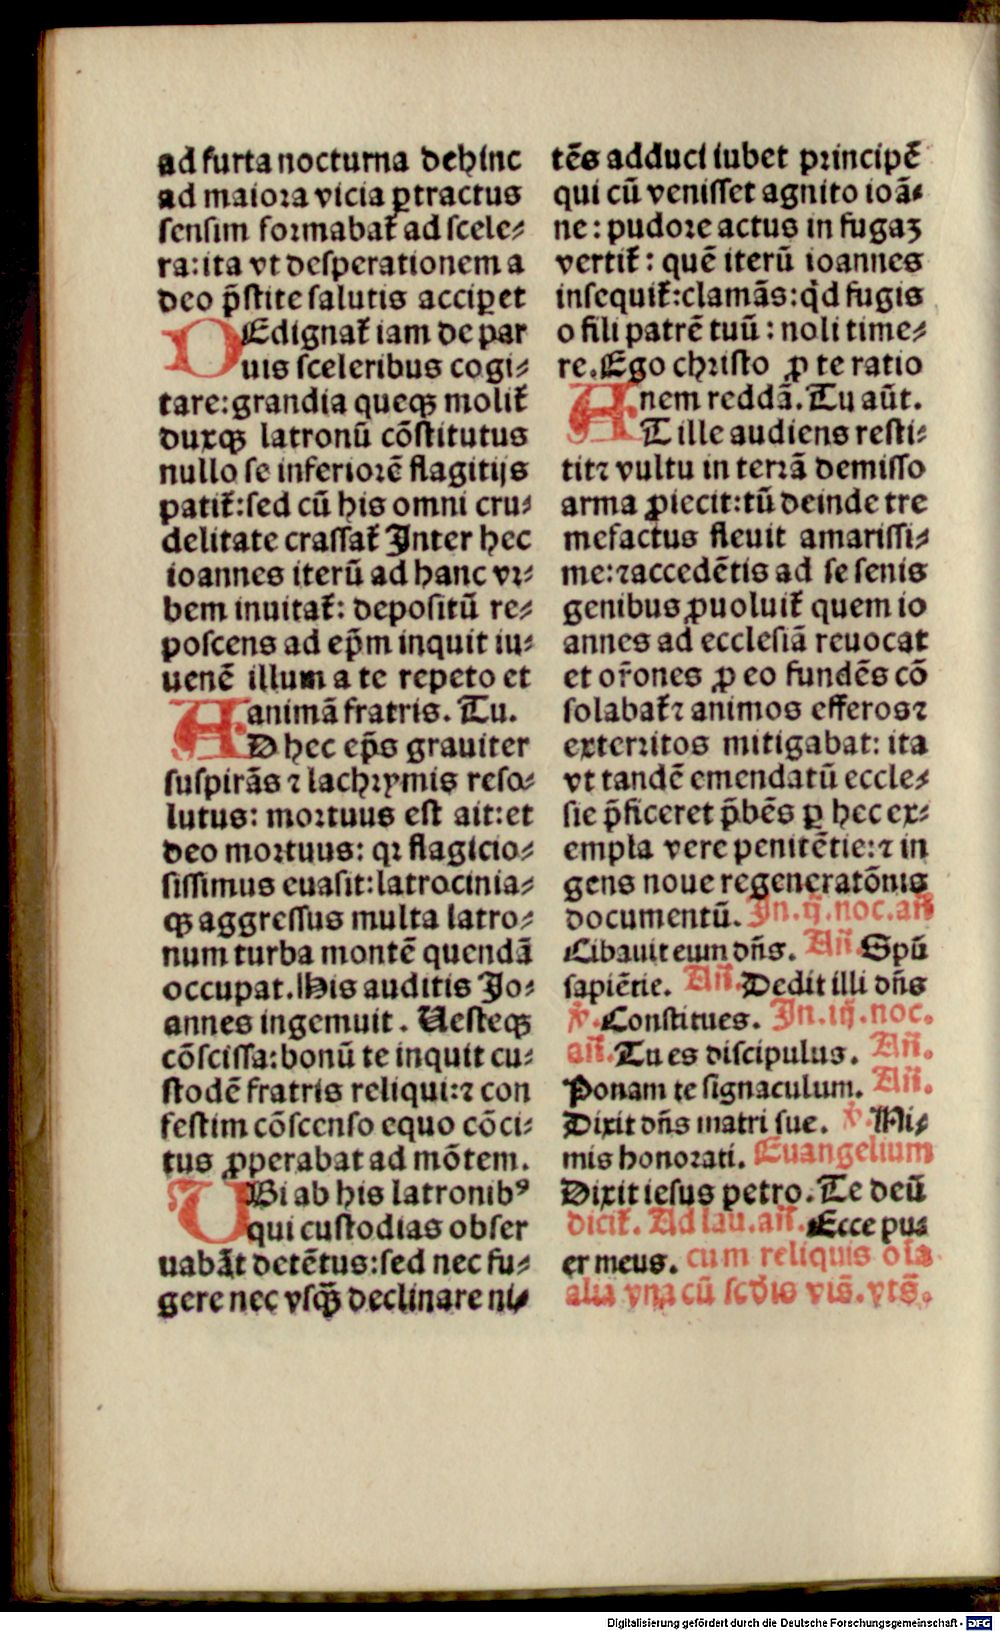 ad furta nocturna dehinc
ad maiora vicia ꝑtractus
senſim formabat᷑ ad ſcele⸗
ra: ita vt deſperationem a
deo p̄ſtite ſalutis accipet
DEdignat᷑ iam de par
uis ſceleribus cogi⸗
tare: grandia queqꝫ molit᷑
duxqꝫ latronū cōſtitutus
nullo ſe inferiorē flagitijs
patit᷑: ſed cū his omni cru⸗
delitate craſſat᷑ Inter hec
ioannes iterū ad hanc vr⸗
bem inuitat᷑: depoſitū re⸗
poſcens ad ep̄m inquit iu⸗
uenē illum a te repeto et
animā fratris. Tu.
AD hec ep̄s grauiter
ſuſpirās ⁊ lachrymis reſo⸗
lutus: mortuus eſt ait: et
deo mortuus: qꝛ flagicio⸗
ſiſſimus euaſit: latrocinia⸗
qꝫ aggreſſus multa latro⸗
num turba montē quendā
occupat. His auditis Jo⸗
annes ingemuit. Ueſteqꝫ
cōſciſſa: bonū te inquit cu⸗
ſtodē fratris reliqui: ⁊ con
feſtim cōſcenſo equo cōci⸗
tus ꝓperabat ad mōtem.
UBi ab his latronibꝰ
qui cuſtodias obſer
uabāt detētus: ſed nec fu⸗
gere nec vſqꝫ declinare ni⸗
tēs adduci iubet principē
qui cū veniſſet agnito ioā⸗
ne: pudore actus in fugaꝫ
vertit᷑: quē iterū ioannes
inſequit᷑: clamās: qͥd fugis
o fili patrē tuū: noli time⸗
re. Ego chriſto ꝓ te ratio
nem reddā. Tu aūt.
AT ille audiens reſti⸗
tit⁊ vultu in terrā demiſſo
arma ꝓiecit: tū deinde tre
mefactus fleuit amariſſi⸗
me: ⁊ accedētis ad ſe ſenis
genibus ꝓuoluit᷑ quem io
annes ad eccleſiā reuocat
et or̄ones ꝓ eo fundēs cō
ſolabat᷑⁊ animos efferos⁊
exterritos mitigabat: ita
vt tandē emendatū eccle⸗
ſie p̄ficeret p̄bēs ꝑ hec ex⸗
empla vere penitētie: ⁊ in
gens noue regeneratōnis
documentū. In.ij.noc.an̄
Cibauit eum dn̄s. An̄. Spū
ſapiētie. An̄. Dedit illi dn̄s
℣. Conſtitues. In.iij.noc.
an̄. Tu es diſcipulus. An̄.
Ponam te ſignaculum. An̄.
Dixit dn̄s matri ſue. ℣. Ni⸗
mis honorati. Euangelium
Dixit ieſus petro. Te deū
dicit᷑. Ad lau. an̄. Ecce pu⸗
er meus. cum reliquis
alia vna cū
Digitalisierung gefördert durch die Deutsche Forschungsgemeinschaft - DFG